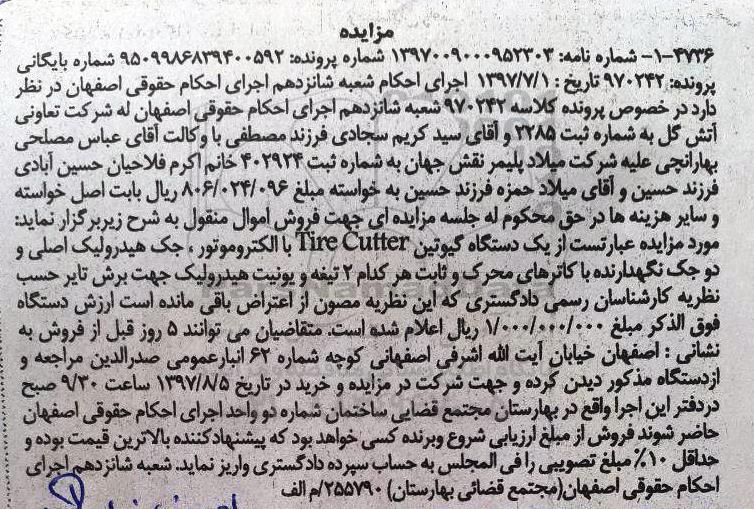 مزایده
۴۷۳۶-۱- شماره نامه: ۱۳۹۷۰۰۹۰۰۰۹۵۲۳۰۳ شماره پرونده: ۹۵۰۹۹۸۶۸۳۹۴۰۰۵۹۲ شماره بایگانی
پرونده: ۹۷۰۲۴۲ تاریخ : ۱۳۹۷/۷/۱ اجرای احکام شعبه شانزدهم اجرای احکام حقوقی اصفهان در نظر
دارد در خصوص پرونده کلاسه ۹۷۰۲۴۲ شعبه شانزدهم اجرای احکام حقوقی اصفهان له شرکت تعاونی
آتش گل به شماره ثبت ۲۲۸۵ و آقای سید کریم سجادی فرزند مصطفی با وکالت آقای عباس مصلحی
بهارانچی علیه شرکت میلاد پلیمر نقش جهان به شماره ثبت ۴۰۲۹۲۴ خانم اکرم فلاحیان حسین آبادی
فرزند حسین و آقای میلاد حمزه فرزند حسین به خواسته مبلغ ۸۰۶/۰۲۴/۰۹۶ ریال بابت اصل خواسته
و سایر هزینه ها در حق محکوم له جلسه مزایده ای جهت فروش اموال منقول به شرح زیربرگزار نماید:
مورد مزایده عبارتست از یک دستگاه گیوتین Tire Cutter با الکتروموتور ، جک هیدرولیک اصلی و
دو جک نگهدارنده با کاترهای محرک و ثابت هر کدام ۲ تیغه و یونیت هیدرولیک جهت برش تایر حسب
نظریه کارشناسان رسمی دادگستری که این نظریه مصون از اعتراض باقی مانده است ارزش دستگاه
فوق الذکر مبلغ ۱/۰۰۰/۰۰۰/۰۰۰ ریال اعلام شده است. متقاضیان می توانند ۵ روز قبل از فروش به
نشانی : اصفهان خیابان آیت الله اشرفی اصفهانی کوچه شماره ۶۲ انبارعمومی صدرالدین مراجعه و
ازدستگاه مذکور دیدن کرده و جهت شرکت در مزایده و خرید در تاریخ ۱۳۹۷/۸/۵ ساعت ۹/۳۰ صبح
دردفتر این اجرا واقع در بهارستان مجتمع قضایی ساختمان شماره دو واحد اجرای احکام حقوقی اصفهان
حاضر شوند فروش از مبلغ ارزیابی شروع وبرنده کسی خواهد بود که پیشنهادکننده بالاترین قیمت بوده و
حداقل ۱۰٪ مبلغ تصویبی را فی المجلس به حساب سپرده دادگستری واریز نماید. شعبه شانزدهم اجرای
احکام حقوقی اصفهان(مجتمع قضائی بهارستان) ۲۵۵۷۹۰/م الف